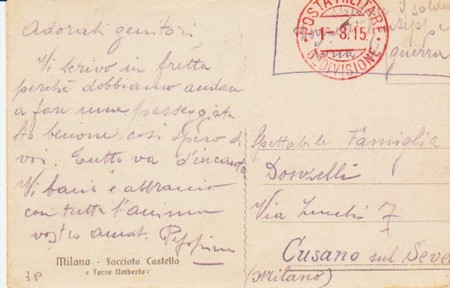 Adorati genitori
Vi scrivo in fretta
perché dobbiamo andare
a fare una passeggiata
Sto benone così spero di
voi. Tutto va d'incanto
Vi bacio e abbraccio
con tutta l'anima
vostro amat.
Milano - Facciata Castello
e Torre Umberto I°
POSTA MILITARE
1-8.15
DIVISIONE
I solda
guerra
Spettabile Famiglia
Via 7
Cusano sul Seve
(Milano)